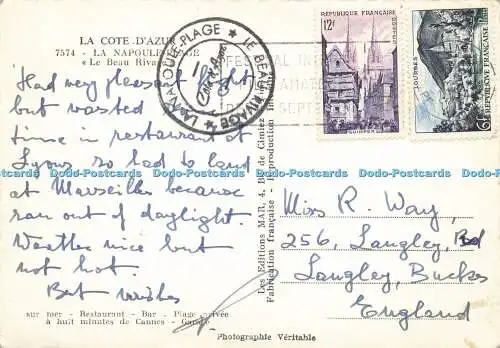 LA COTE-D'AZUR
7574 - LA NAPOULE-PLAGE
« Le Beau Rivage »
Had very pleasant flight
but wasted
time in restaurant at
Lyons so had to land
at Marseilles because
ran out of daylight.
Weather nice but
not hot.
Best wishes
sur mer - Restaurant - Bar - Plage privée
à huit minutes de Cannes - Garage
LA NAPOULE-PLAGE ★ LE BEAU RIVAGE ★
Côte d'Azur
Les Editions MAR, 4, Bd de Cimiez
Fabrication française - Reproduction
REPUBLIQUE FRANÇAISE
12F
QUIMPER
POSTES
LOURDES
6F
REPUBLIQUE FRANÇAISE
SEPT
Miss R. Way,
256, Langley, Rd
Langley, Bucks
England
Photographie Véritable
www.hippostcard.com